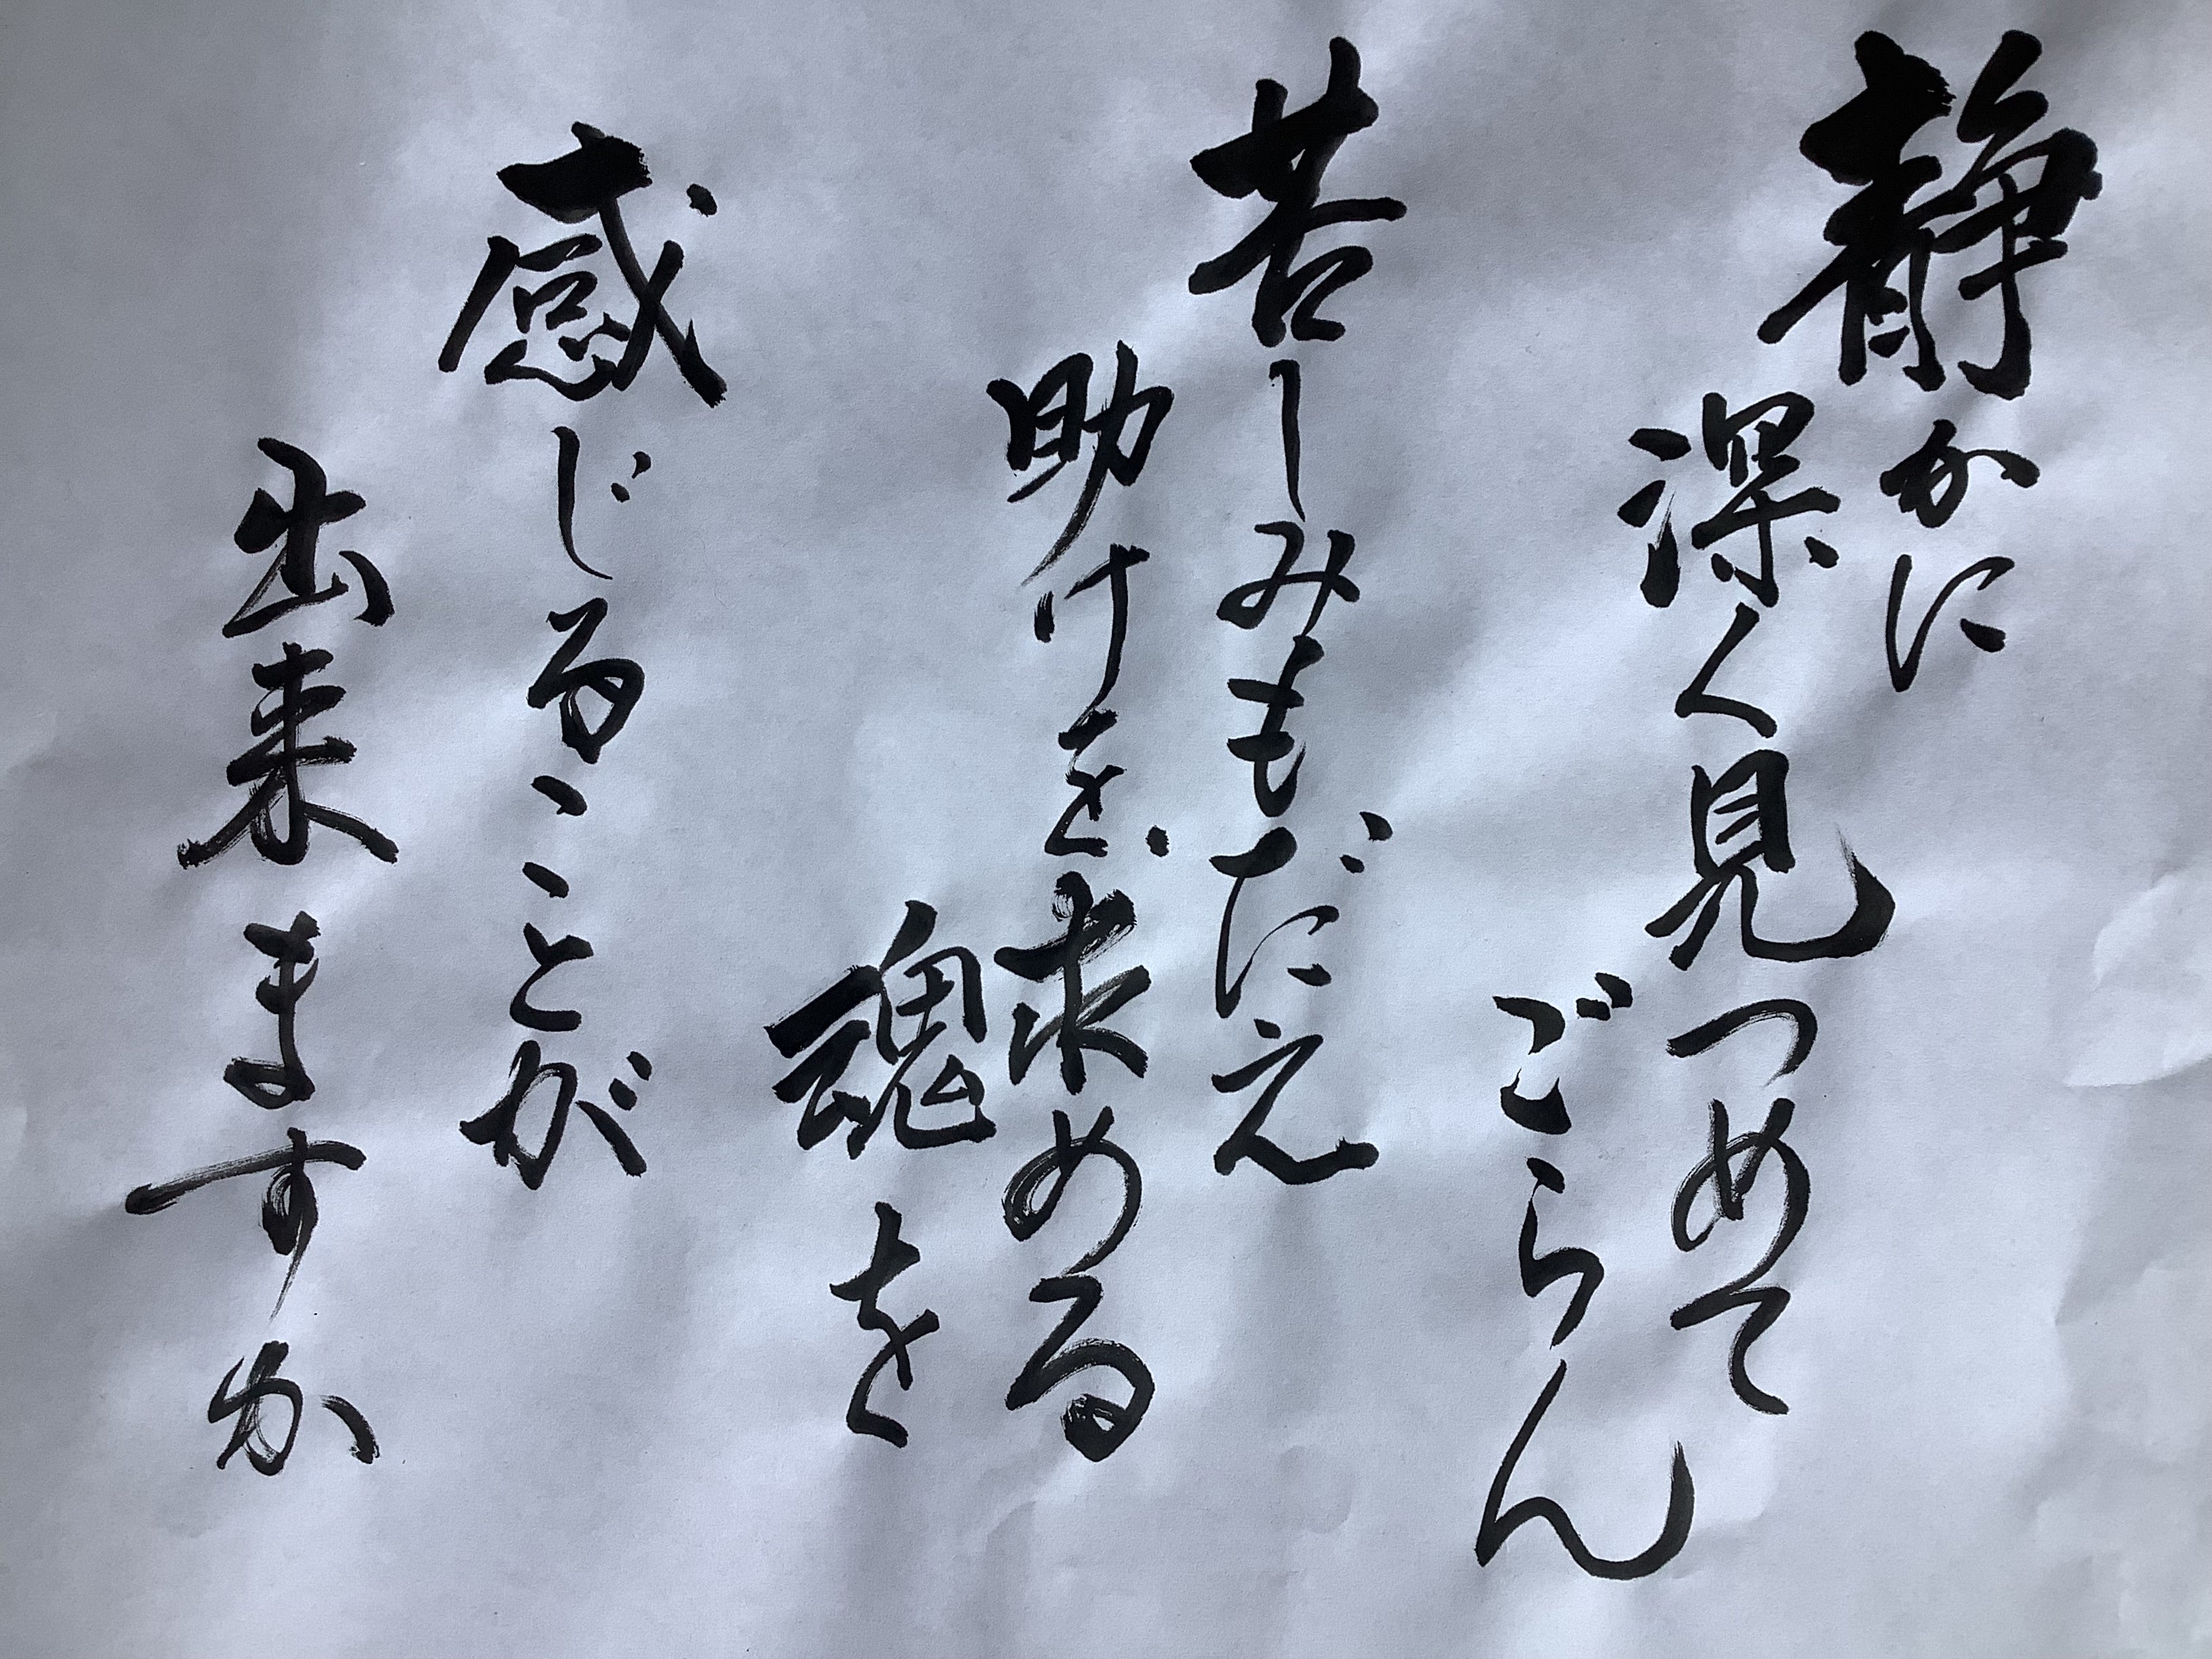 静かに
深く見つめて
ごらん
苦しみもだえ
助けを求める
魂を
感じることが
出来ますか